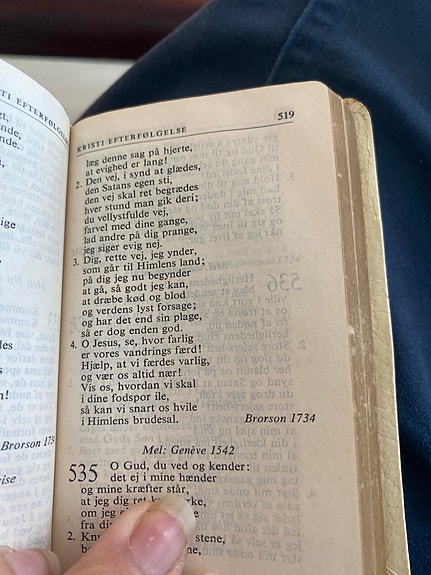 TI EFTERFØLGELSE
nde,
de.
ige
des
!
Brorson 1734
ise
KRISTI EFTERFØLGELSE 519
læg denne sag på hjerte,
at evighed er lang!
2. Den vej, i synd at glædes,
den Satans egen sti,
den vej skal ret begrædes
hver stund man gik deri;
du vellystfulde vej,
farvel med dine gange,
lad andre på dig prange,
jeg siger evig nej.
3. Dig, rette vej, jeg ynder,
som går til Himlens land;
på dig jeg nu begynder
at gå, så godt jeg kan,
at dræbe kød og blod
og verdens lyst forsage;
og har det end sin plage,
så er dog enden god.
4. O Jesus, se, hvor farlig
er vores vandrings færd!
Hjælp, at vi færdes varlig,
og vær os altid nær!
Vis os, hvordan vi skal
i dine fodspor ile,
så kan vi snart os hvile
i Himlens brudesal. Brorson 1734
Mel: Genève 1542
535 O Gud, du ved og kender:
det ej i mine hænder
og mine kræfter står,
at jeg dig ret
om jeg
fra
2. stene,